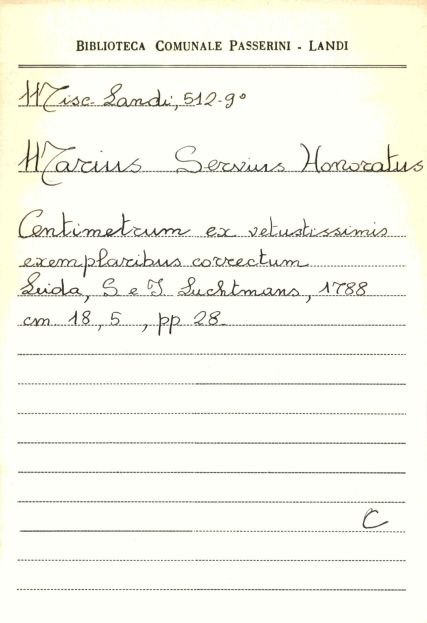 BIBLIOTECA COMUNALE PASSERINI - LANDI
Misc. Landi, 512-9°
Marius Servius Honoratus
Centimetrum ex vetustissimis
exemplaribus correctum
Leida, S e J Luchtmans, 1788
cm 18,5 , pp 28.
C